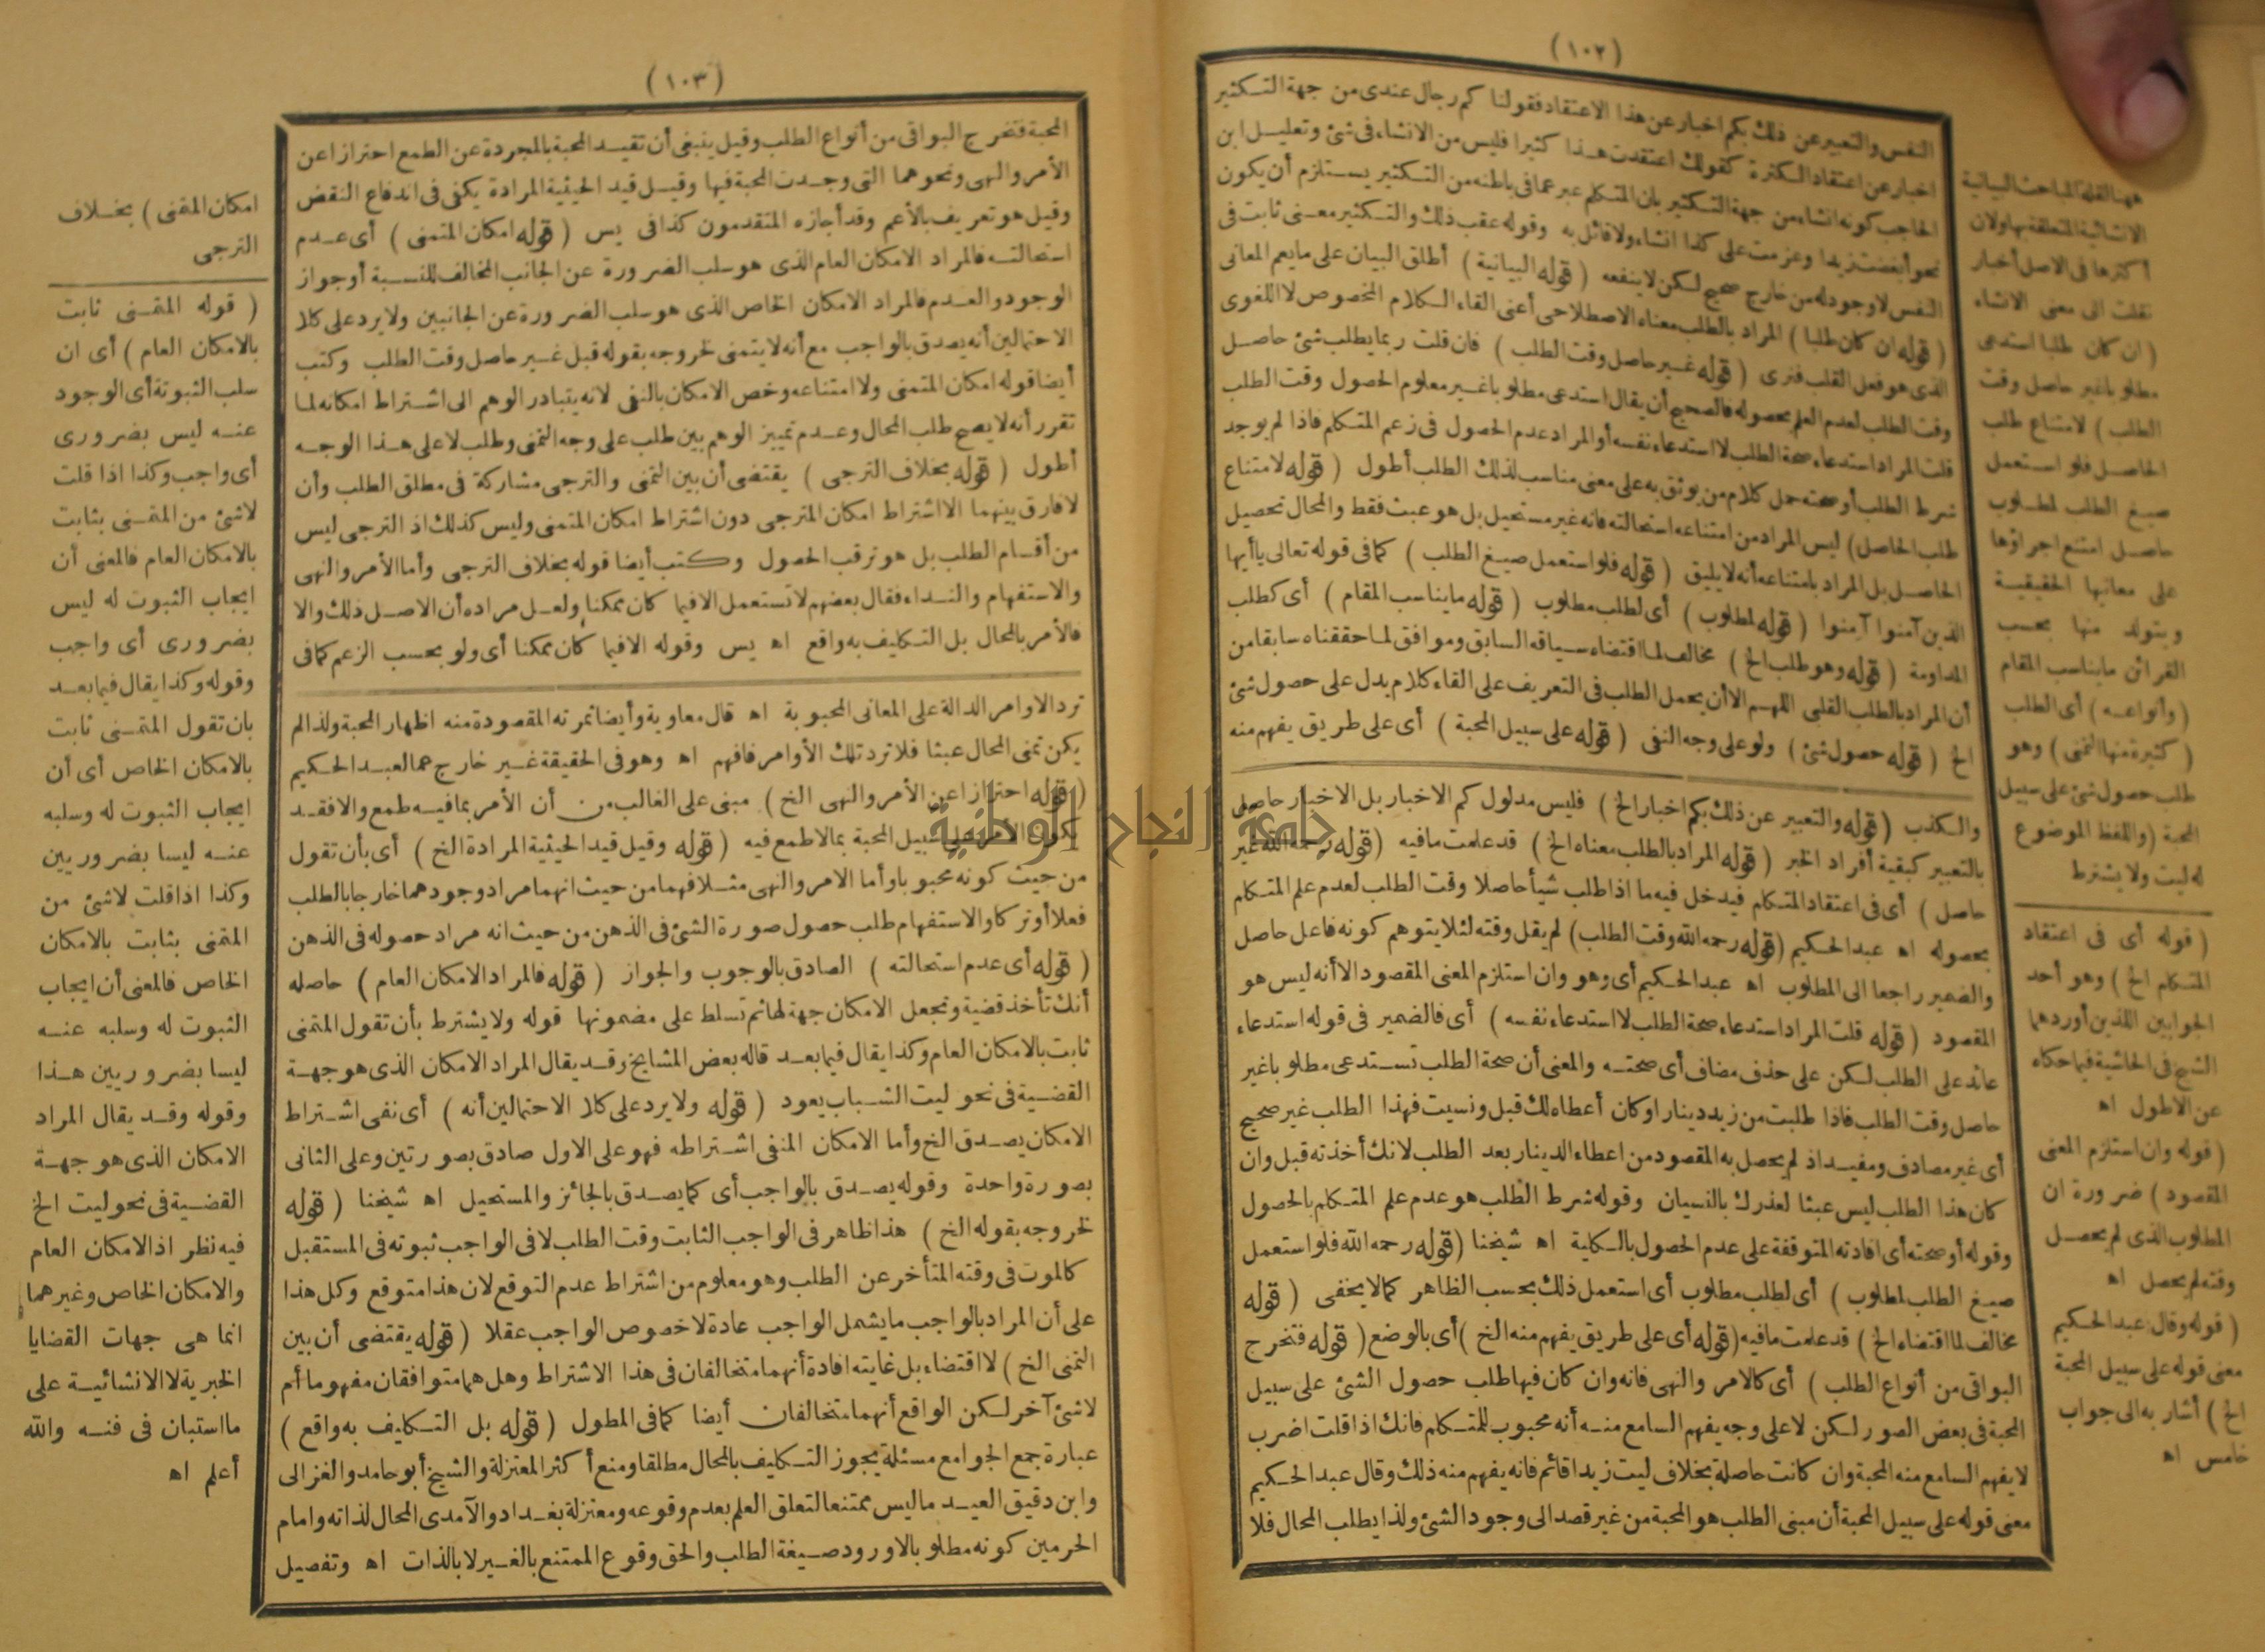 (١٠٢)
النفس والتعبير عن ذلك بكم اخبار عن هذا الاعتقاد فقولنا كم رجال عندى من جهة التكثير
اخبار عن اعتقاد الكثرة كقولك اعتقدت هذا كثيرا فليس من الانشاء فى شئ وتعليل ابن
الحاجب كونه انشاء من جهة التكثير بان المتكلم عبر عما فى باطنه من التكثير يستلزم أن يكون
نحو أبغضت زيدا وعزمت على كذا انشاء ولا قائل به وقوله عقب ذلك والتكثير معنى ثابت فى
النفس لا وجود له من خارج صحيح لكن لا ينفعه (قوله البيانية) أطلق البيان على ما يعم المعانى
(قوله ان كان طلبا) المراد بالطلب معناه الاصطلاحى أعنى القاء الكلام المخصوص لا اللغوى
الذى هو فعل القلب فنرى (قوله غير حاصل وقت الطلب) فان قلت ربما يطلب شئ حاصل
وقت الطلب لعدم العلم بحصوله فالصحيح أن يقال استدعى مطلوبا غير معلوم الحصول وقت الطلب
قلت المراد استدعاء صحة الطلب لا استدعاء نفسه أو المراد عدم الحصول فى زعم المتكلم فاذا لم يوجد
شرط الطلب أو صحته حمل كلام من يوثق به على معنى مناسب لذلك الطلب أطول (قوله لامتناع
طلب الحاصل) ليس المراد من امتناعه استحالته فانه غير مستحيل بل هو عبث فقط والمحال تحصيل
الحاصل بل المراد بامتناعه أنه لا يليق (قوله فلو استعمل صيغ الطلب) كما فى قوله تعالى يا أيها
الذين آمنوا آمنوا (قوله لمطلوب) أى لطلب مطلوب (قوله ما يناسب المقام) أى كطلب
المداومة (قوله وهو طلب الخ) مخالف لما اقتضاه سياقه السابق وموافق لما حققناه سابقا من
أن المراد بالطلب القلبى اللهم الا أن يحمل الطلب فى التعريف على القاء كلام يدل على حصول شئ
الخ (قوله حصول شئ) ولو على وجه النفى (قوله على سبيل المحبة) أى على طريق يفهم منه
والكذب (قوله والتعبير عن ذلك بكم اخبار الخ) فليس مدلول كم الاخبار بل الاخبار حاصل
بالتعبير كبقية أفراد الخبر (قوله المراد بالطلب معناه الخ) قد علمت ما فيه (قوله رحمه الله غير
حاصل) أى فى اعتقاد المتكلم فيدخل فيه ما اذا طلب شيأ حاصلا وقت الطلب لعدم علم المتكلم
بحصوله اه عبد الحكيم (قوله رحمه الله وقت الطلب) لم يقل وقته لئلا يتوهم كونه فاعل حاصل
والضمير راجعا الى المطلوب اه عبد الحكيم أى وهو وان استلزم المعنى المقصود الا أنه ليس هو
المقصود (قوله قلت المراد استدعاء صحة الطلب لا استدعاء نفسه) أى فالضمير فى قوله استدعاء
عائد على الطلب لكن على حذف مضاف أى صحته والمعنى أن صحة الطلب تستدعى مطلوبا غير
حاصل وقت الطلب فاذا طلبت من زيد دينارا وكان أعطاه لك قبل ونسيت فهذا الطلب غير صحيح
أى غير مصادف ومفيد اذ لم يحصل به المقصود من اعطاء الدينار بعد الطلب لانك أخذته قبل وان
كان هذا الطلب ليس عبثا لعذرك بالنسيان وقوله شرط الطلب هو عدم علم المتكلم بالحصول
وقوله أو صحته أى افادته المتوقفة على عدم الحصول بالكلية اه شيخنا (قوله رحمه الله فلو استعمل
صيغ الطلب لمطلوب) أى لطلب مطلوب أى استعمل ذلك بحسب الظاهر كما لا يخفى (قوله
مخالف لما اقتضاه الخ) قد علمت ما فيه (قوله أى على طريق يفهم منه الخ) أى بالوضع (قوله فتخرج
البواقى من أنواع الطلب) أى كالامر والنهى فانه وان كان فيها طلب حصول الشئ على سبيل
المحبة فى بعض الصور لكن لا على وجه يفهم السامع منه أنه محبوب للمتكلم فانك اذا قلت اضرب
لا يفهم السامع منه المحبة وان كانت حاصلة بخلاف ليت زيدا قائم فانه يفهم منه ذلك وقال عبد الحكيم
معنى قوله على سبيل المحبة أن مبنى الطلب هو المحبة من غير قصد الى وجود الشئ ولذا يطلب المحال فلا
ههنا لقلة المباحث البيانية
الانشائية المتعلقة بها ولان
أكثرها فى الاصل أخبار
نقلت الى معنى الانشاء
(ان كان طلبا استدعى
مطلوبا غير حاصل وقت
الطلب) لامتناع طلب
الحاصل فلو استعمل
صيغ الطلب لمطلوب
حاصل امتنع اجراؤها
على معانيها الحقيقية
ويتولد منها بحسب
القرائن ما يناسب المقام
(وأنواعه) أى الطلب
(كثيرة منها التمنى) وهو
طلب حصول شئ على سبيل
المحبة (واللفظ الموضوع
له ليت ولا يشترط
(قوله أى فى اعتقاد
المتكلم الخ) وهو أحد
الجوابين اللذين أوردهما
الشيخ فى الحاشية فيما حكاه
عن الاطول اه
(قوله وان استلزم المعنى
المقصود) ضرورة ان
المطلوب الذى لم يحصل
وقته لم يحصل اه
(قوله وقال عبد الحكيم
معنى قوله على سبيل المحبة
الخ) أشار به الى جواب
خامس اه
(١٠٣)
المحبة فتخرج البواقى من أنواع الطلب وقيل ينبغى أن تقيد المحبة بالمجردة عن الطمع احترازا عن
الأمر والنهى ونحوهما التى وجدت المحبة فيها وقيل قيد الحيثية المرادة يكفى فى اندفاع النقض
وقيل هو تعريف بالأعم وقد أجازه المتقدمون كذا فى يس (قوله امكان المتمنى) أى عدم
استحالته فالمراد الامكان العام الذى هو سلب الضرورة عن الجانب المخالف للنسبة أو جواز
الوجود والعدم فالمراد الامكان الخاص الذى هو سلب الضرورة عن الجانبين ولا يرد على كلا
الاحتمالين أنه يصدق بالواجب مع أنه لا يتمنى لخروجه بقوله قبل غير حاصل وقت الطلب وكتب
أيضا قوله امكان المتمنى ولا امتناعه وخص الامكان بالنفى لانه يتبادر الوهم الى اشتراط امكانه لما
تقرر أنه لا يصح طلب المحال وعدم تمييز الوهم بين طلب على وجه التمنى وطلب لا على هذا الوجه
أطول (قوله بخلاف الترجى) يقتضى أن بين التمنى والترجى مشاركة فى مطلق الطلب وأن
لا فارق بينهما الا اشتراط امكان المترجى دون اشتراط امكان المتمنى وليس كذلك اذ الترجى ليس
من أقسام الطلب بل هو ترقب الحصول وكتب أيضا قوله بخلاف الترجى وأما الأمر والنهى
والاستفهام والنداء فقال بعضهم لا تستعمل الا فيما كان ممكنا ولعل مراده أن الاصل ذلك والا
فالأمر بالمحال بل التكليف به واقع اه يس وقوله الا فيما كان ممكنا أى ولو بحسب الزعم كما فى
ترد الاوامر الدالة على المعانى المحبوبة اه قال معاوية وأيضا ثمرته المقصودة منه اظهار المحبة ولذا لم
يكن تمنى المحال عبثا فلا ترد تلك الأوامر فافهم اه وهو فى الحقيقة غير خارج عما لعبد الحكيم
(قوله احترازا عن الأمر والنهى الخ) مبنى على الغالب من أن الأمر بما فيه طمع والا فقد
يكون الامر على سبيل المحبة بما لا طمع فيه (قوله وقيل قيد الحيثية المرادة الخ) أى بأن تقول
من حيث كونه محبوبا وأما الامر والنهى مثلا فهما من حيث انهما مراد وجودهما خارجا بالطلب
فعلا أو تركا والاستفهام طلب حصول صورة الشئ فى الذهن من حيث انه مراد حصوله فى الذهن
(قوله أى عدم استحالته) الصادق بالوجوب والجواز (قوله فالمراد الامكان العام) حاصله
أنك تأخذ قضية وتجعل الامكان جهة لها ثم تسلط على مضمونها قوله ولا يشترط بأن تقول المتمنى
ثابت بالامكان العام وكذا يقال فيما بعد قاله بعض المشايخ وقد يقال المراد الامكان الذى هو جهة
القضية فى نحو ليت الشباب يعود (قوله ولا يرد على كلا الاحتمالين أنه) أى نفى اشتراط
الامكان يصدق الخ وأما الامكان المنفى اشتراطه فهو على الاول صادق بصورتين وعلى الثانى
بصورة واحدة وقوله يصدق بالواجب أى كما يصدق بالجائز والمستحيل اه شيخنا (قوله
لخروجه بقوله الخ) هذا ظاهر فى الواجب الثابت وقت الطلب لا فى الواجب ثبوته فى المستقبل
كالموت فى وقته المتأخر عن الطلب وهو معلوم من اشتراط عدم التوقع لان هذا متوقع وكل هذا
على أن المراد بالواجب ما يشمل الواجب عادة لا خصوص الواجب عقلا (قوله يقتضى أن بين
التمنى الخ) لا اقتضاء بل غايته افادة أنهما متخالفان فى هذا الاشتراط وهل هما متوافقان مفهوما أم
لا شئ آخر لكن الواقع أنهما متخالفان أيضا كما فى المطول (قوله بل التكليف به واقع)
عبارة جمع الجوامع مسئلة يجوز التكليف بالمحال مطلقا ومنع أكثر المعتزلة والشيخ أبو حامد والغزالى
وابن دقيق العيد ما ليس ممتنعا لتعلق العلم بعدم وقوعه ومعتزلة بغداد والآمدى المحال لذاته وامام
الحرمين كونه مطلوبا لا ورود صيغة الطلب والحق وقوع الممتنع بالغير لا بالذات اه وتفصيل
امكان المتمنى) بخلاف
الترجى
(قوله المتمنى ثابت
بالامكان العام) أى ان
سلب الثبوتة أى الوجود
عنه ليس بضرورى
أى واجب وكذا اذا قلت
لا شئ من المتمنى بثابت
بالامكان العام فالمعنى أن
ايجاب الثبوت له ليس
بضرورى أى واجب
وقوله وكذا يقال فيما بعد
بان تقول المتمنى ثابت
بالامكان الخاص أى أن
ايجاب الثبوت له وسلبه
عنه ليسا بضروريين
وكذا اذا قلت لا شئ من
المتمنى بثابت بالامكان
الخاص فالمعنى أن ايجاب
الثبوت له وسلبه عنه
ليسا بضروريين هذا
وقوله وقد يقال المراد
الامكان الذى هو جهة
القضية فى نحو ليت الخ
فيه نظر اذ الامكان العام
والامكان الخاص وغيرهما
انما هى جهات القضايا
الخبرية لا الانشائية على
ما استبان فى فنه والله
أعلم اه
جامعة النجاح الوطنية